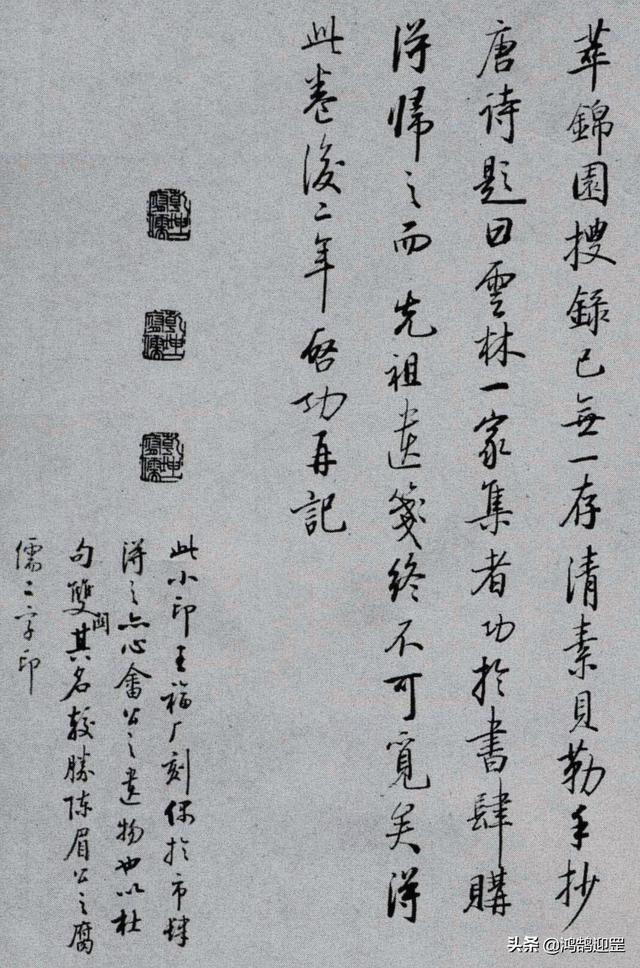 萃錦園搜錄已無一存清素貝勒手抄
唐詩題曰雲林一家集者功於書肆購
得歸之而先祖遺箋終不可覓矣得
此卷後二年啓功再記
此小印王福厂刻偶於市肆
得之亦心畬公之遺物也以杜
句雙関其名較勝陳眉公之腐
儒二字印
头条 @鸿鹄迎罡